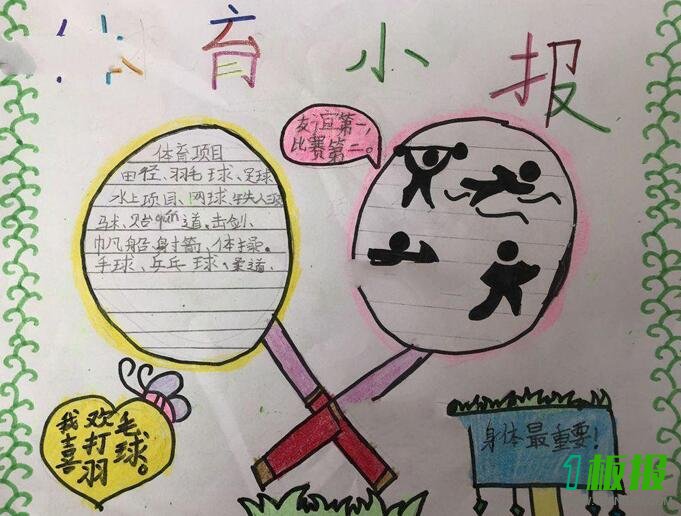 体育小报
友谊第一，
比赛第二。
体育项目
田径、羽毛球、足球
水上项目、网球、
马术、跆quán道、击剑、
帆船、射箭、体操。
手球、乒乓球、柔道、
我喜欢打羽毛球。
身体最重要！
1板报